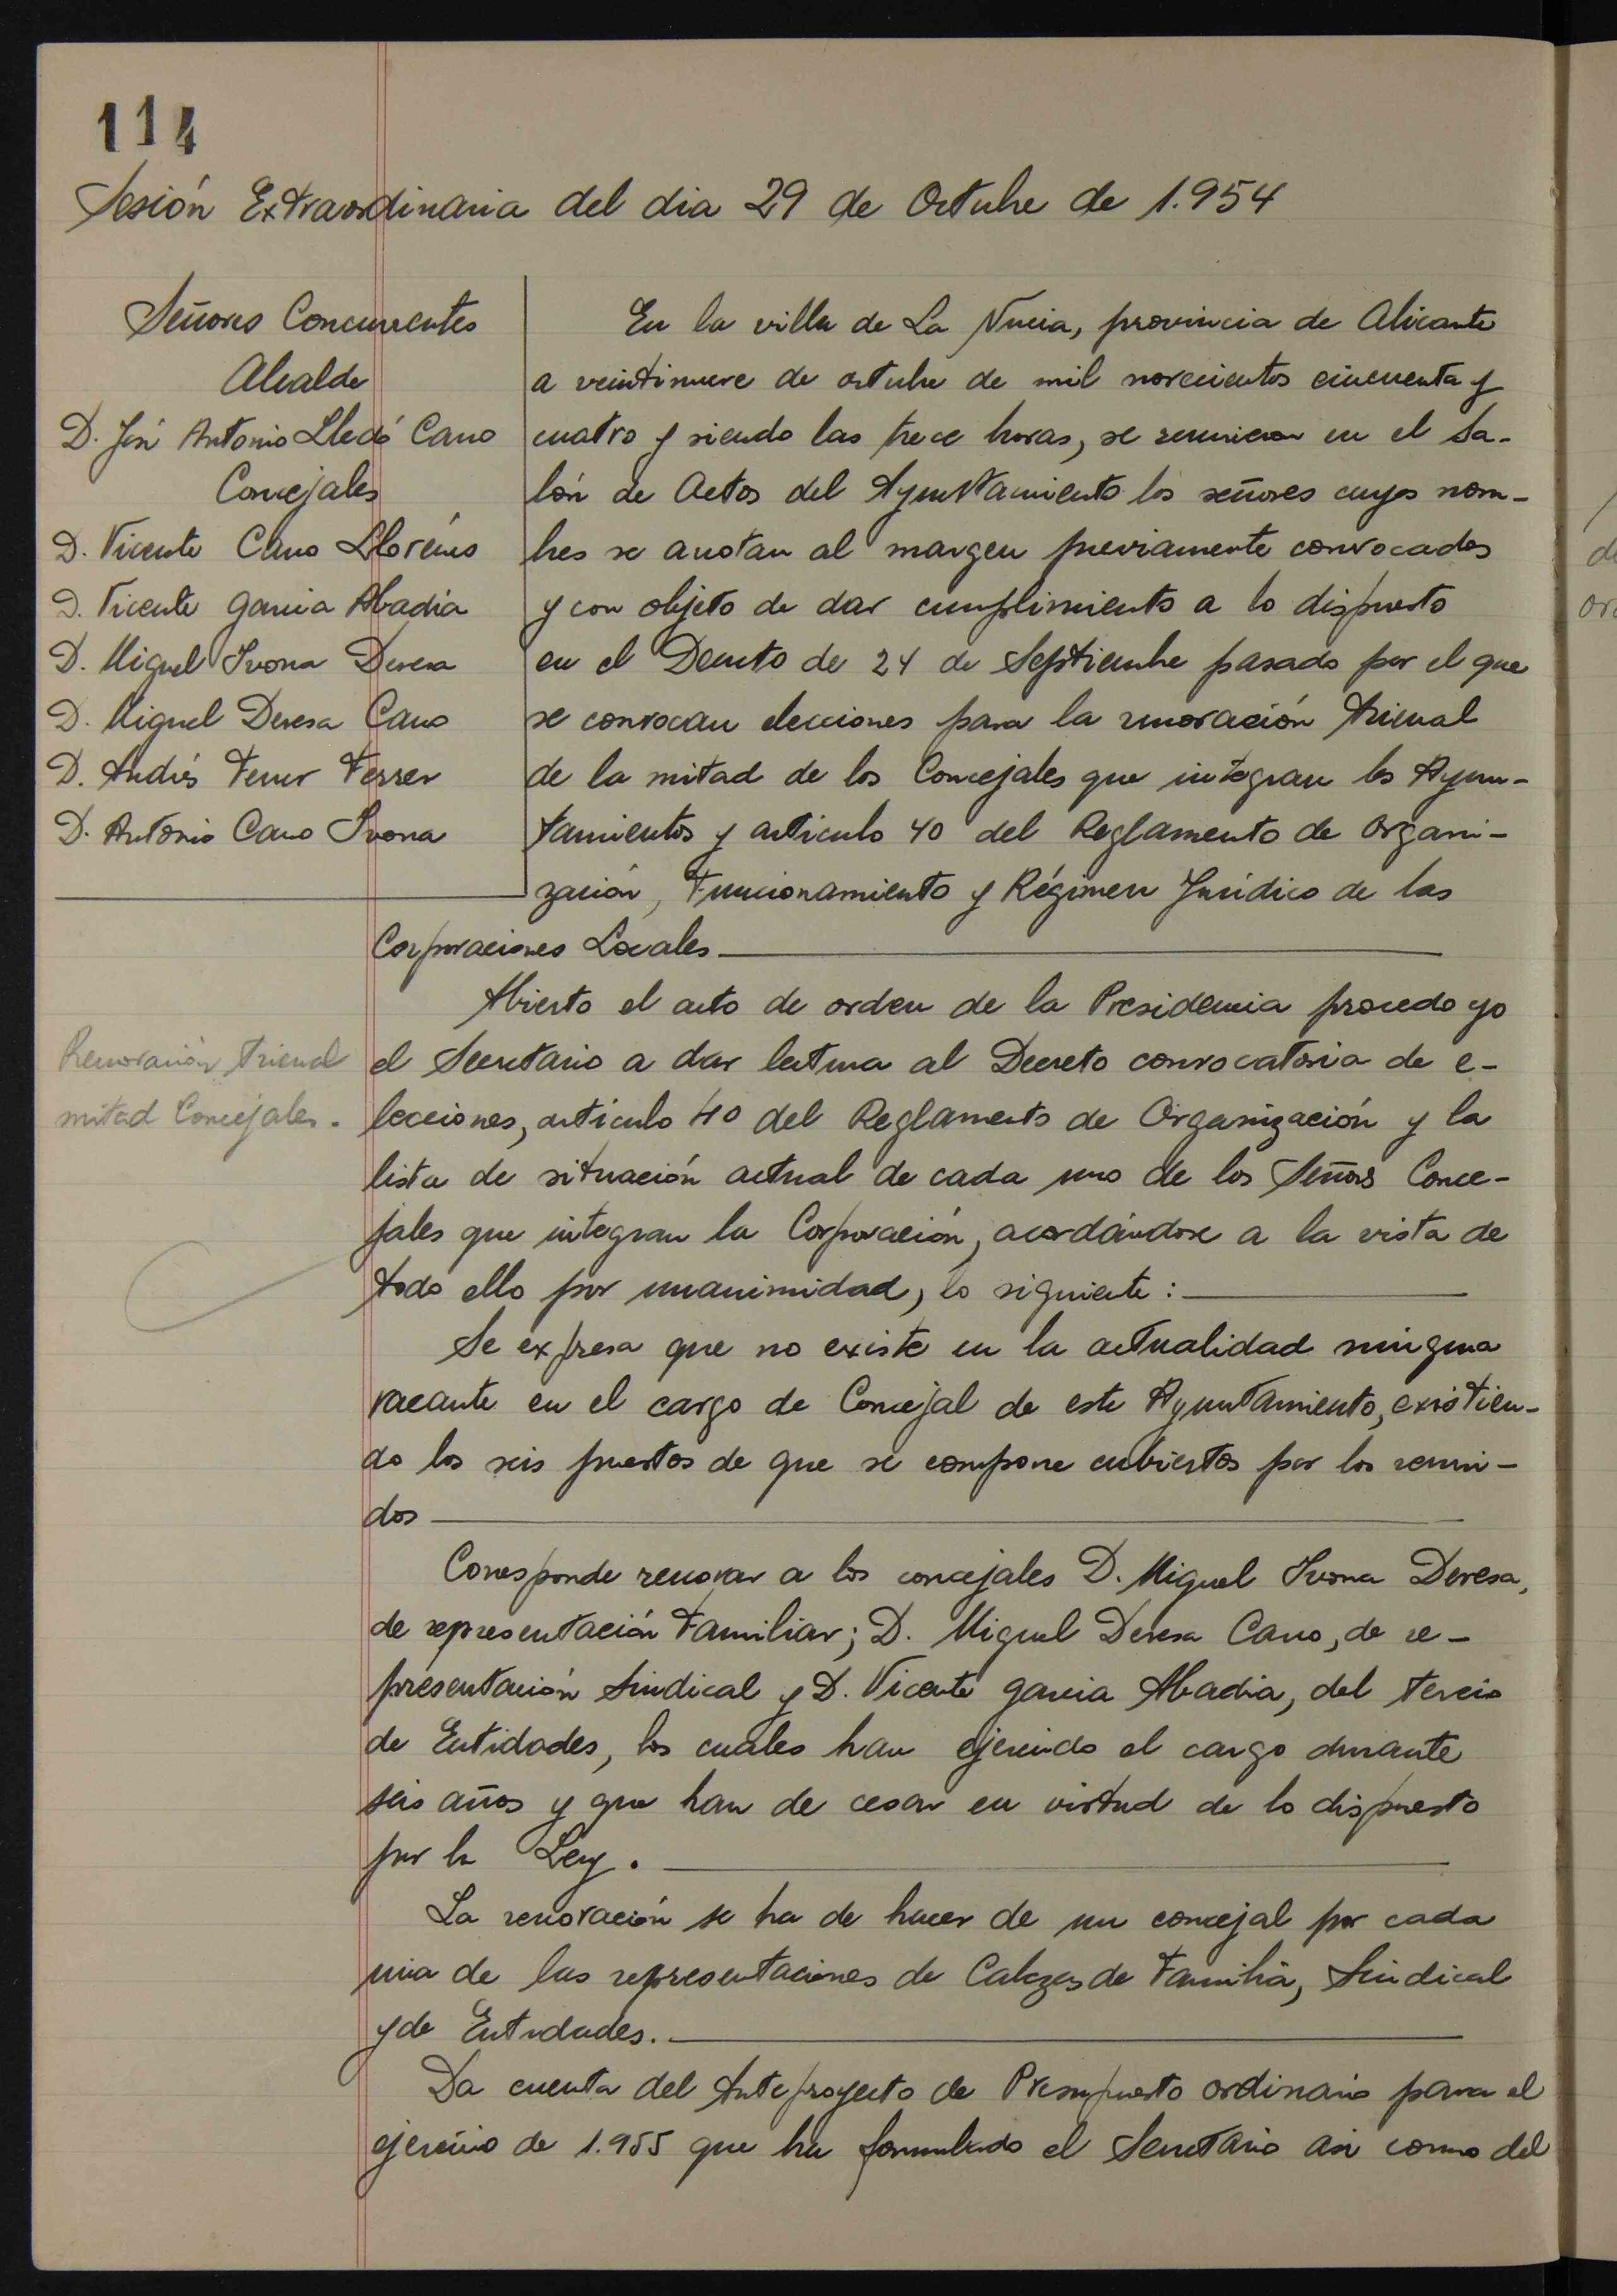 114
Sesión Extraordinaria del dia 29 de Octubre de 1.954
Señores Concurrentes
Alcalde
D. José Antonio Lledó Cano
Concejales
D. Vicente Cano Lloréns
D. Vicente Garcia Abadía
D. Miguel Ivorra Devesa
D. Miguel Devesa Cano
D. Andrés Ferrer Ferrer
D. Antonio Cano Ivorra
En la villa de La Nucia, provincia de Alicante
a veintinueve de octubre de mil novecientos cincuenta y
cuatro y siendo las trece horas, se reunieron en el Sa-
lón de Actos del Ayuntamiento los señores cuyos nom-
bres se anotan al margen previamente convocados
y con objeto de dar cumplimiento a lo dispuesto
en el Decreto de 24 de Septiembre pasado por el que
se convocan elecciones para la renovación trienal
de la mitad de los Concejales que integran los Ayun-
tamientos y articulo 40 del Reglamento de Organi-
zación, Funcionamiento y Régimen Jurídico de las
Corporaciones Locales
Abierto el acto de orden de la Presidencia procedo yo
el Secretario a dar lectura al Decreto convocatoria de e-
lecciones, artículo 40 del Reglamento de Organización y la
lista de situación actual de cada uno de los Señores Conce-
jales que integran la Corporación, acordándose a la vista de
todo ello por unanimidad, lo siguiente:
Renovación trienal
mitad Concejales.
Se expresa que no existe en la actualidad ninguna
vacante en el cargo de Concejal de este Ayuntamiento, existien-
do los seis puestos de que se compone cubiertos por los reuni-
dos
Corresponde renovar a los concejales D. Miguel Ivorra Devesa,
de representación Familiar; D. Miguel Devesa Cano, de re-
presentación Sindical y D. Vicente Garcia Abadia, del tercio
de Entidades, los cuales han ejercido el cargo durante
seis años y que han de cesar en virtud de lo dispuesto
por la Ley.
La renovación se ha de hacer de un concejal por cada
una de las representaciones de Cabezas de Familia, Sindical
y de Entidades.
Da cuenta del Anteproyecto de Presupuesto ordinario para el
ejercicio de 1.955 que ha formulado el Secretario asi como del